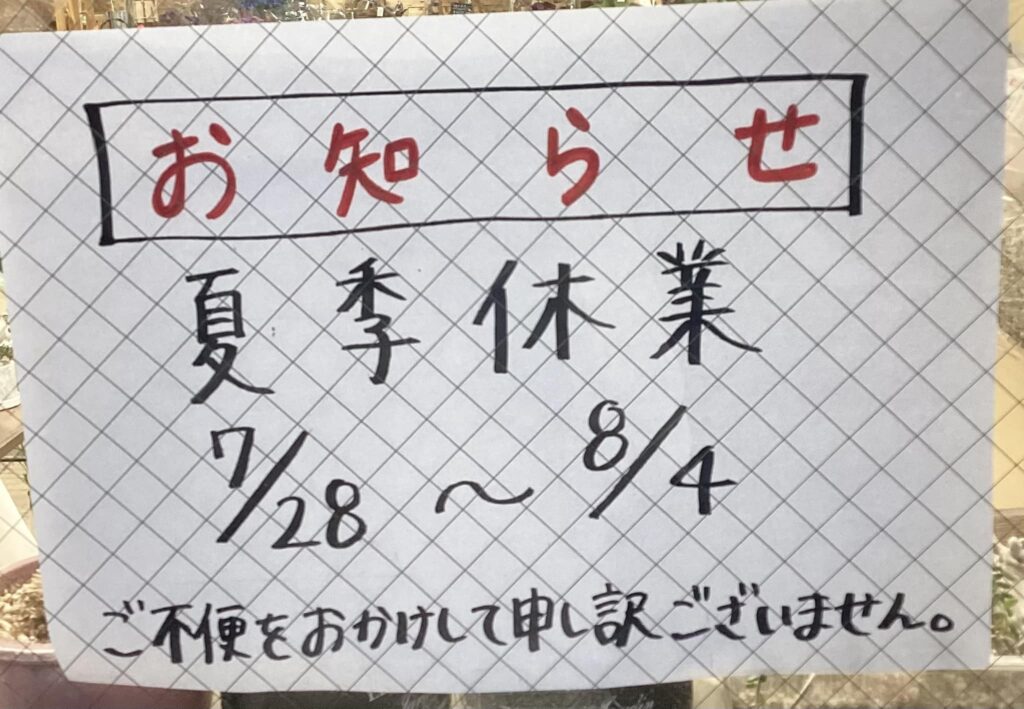 お知らせ
夏季休業
7/28～8/4
ご不便をおかけして申し訳ございません。